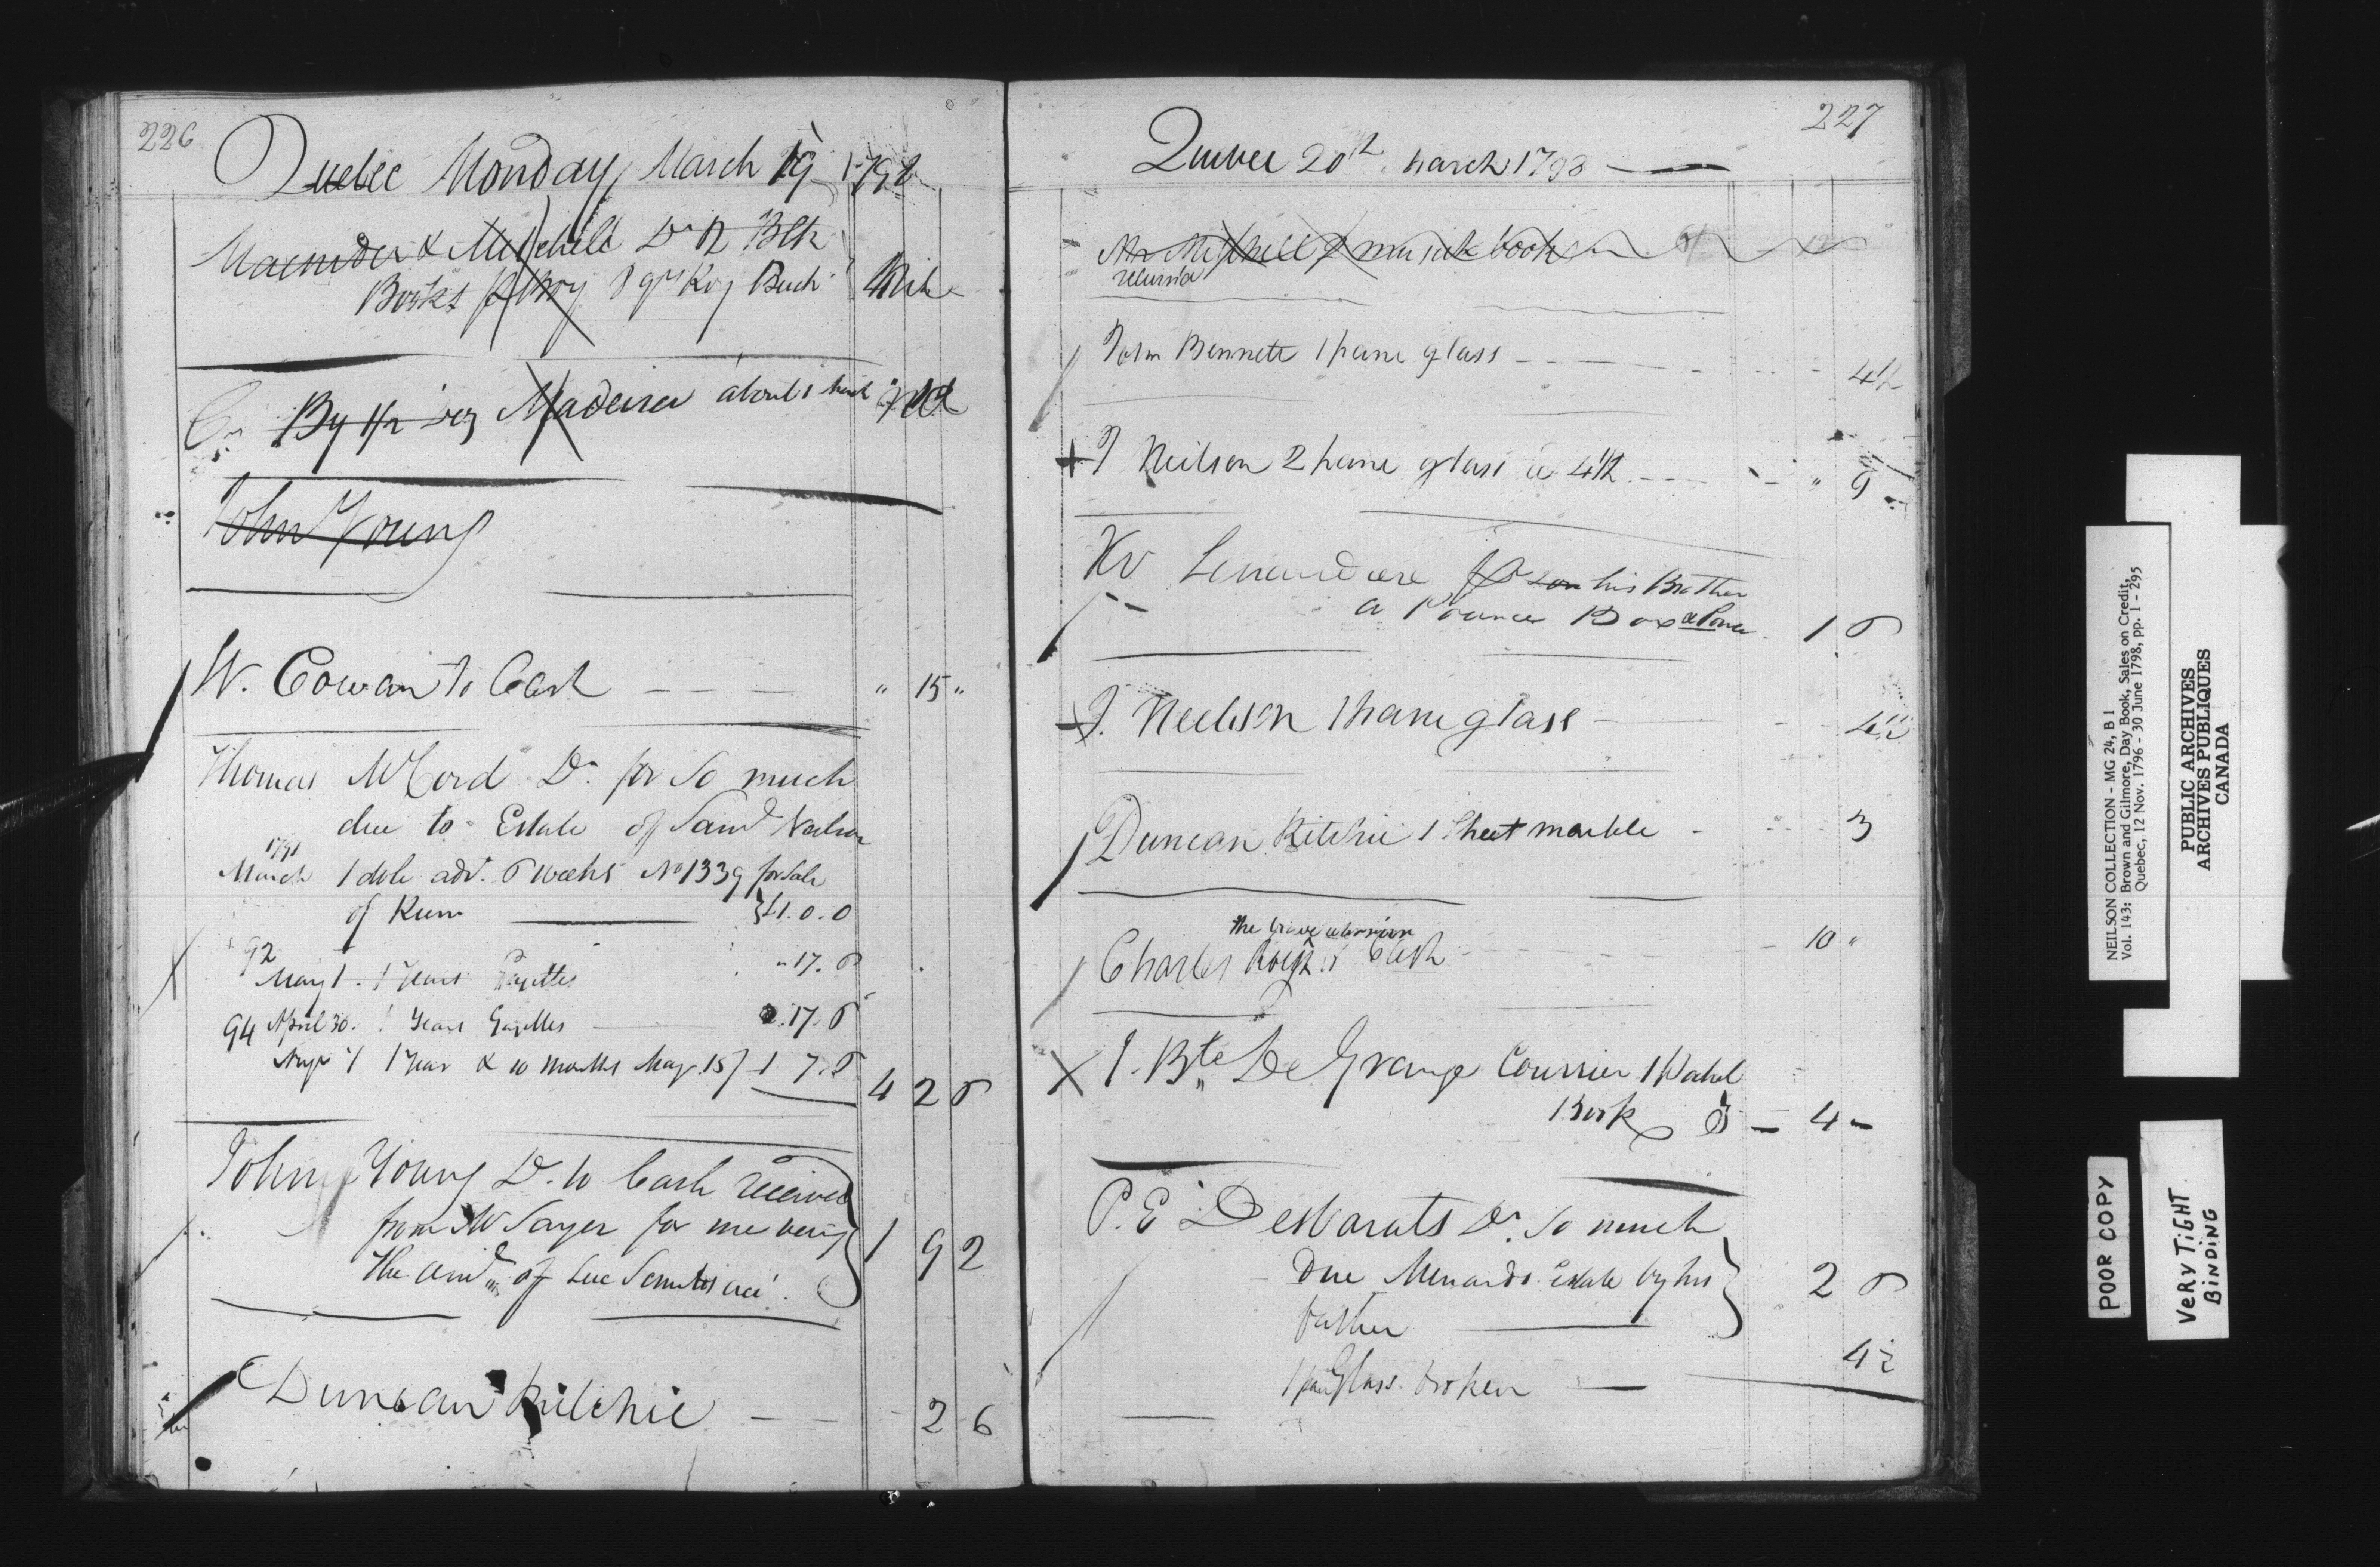 226
Quebec Monday March 19 1798
Macnider & Mitchell Dr 12 Blk
Books
Cr By 1/2 Madeira about
John Young
W. Cowan to Cash - - - " 15 "
Thomas McCord Dr. for So much
due to Estate of Saml Neilson
1791
March 1 dble adv. 6 weeks No 1339 for Sale
of Rum £1.0.0
92
May 1. 1 Years Gazettes " 17. 6
94 April 30. 1 Years Gazettes 0. 17. 6
1 Year & 10 months May 15 1 7. 6
4 2 6
John Young Dr. to Cash received
from Sayer for me being 1 9 2
the amt of
Duncan Ritchie - - - 2 6
227
Quebec 20th March 1798
Mr Mitchell musick book
returned
John Bennett 1 pane glass - - 4½
J Neilson 2 pane glass a 4½ - - " 9
Lanaudiere for son his Brother
a Pounce Box & Pounce 1 6
J. Neilson 1 pane glass - 4½
Duncan Ritchie 1 Sheet marble - 3
the brave
Charles to Cash - - - 10 "
J. Bte De Grange Courrier 1 Pocket
Book - 4 -
P. E Desbarats Dr. So much
Due Menards Estate by his 2 6
father
1 pane Glass broken 4½
NEILSON COLLECTION - MG 24, B 1
Vol. 143: Brown and Gilmore, Day Book, Sales on Credit,
Quebec, 12 Nov. 1796 - 30 June 1798, pp. 1 - 295
PUBLIC ARCHIVES
ARCHIVES PUBLIQUES
CANADA
POOR COPY
VERY TIGHT
BINDING